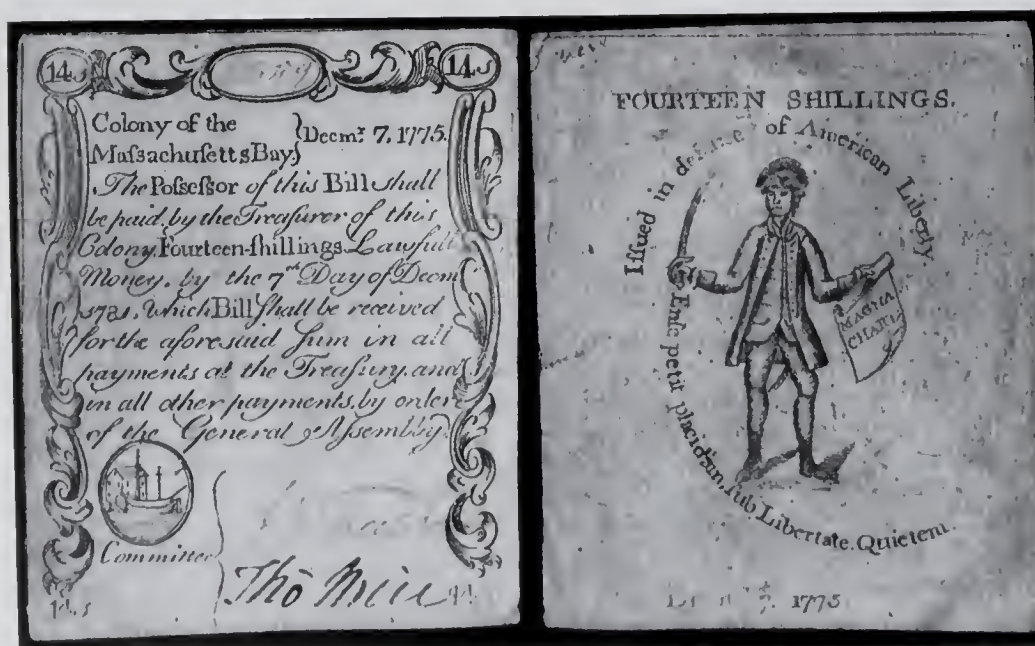 14s 14s
Colony of the
Maſsachuſetts Bay. } Decmr. 7. 1775.
The Poſseſsor of this Bill ſhall
be paid, by the Treaſurer of this
Colony, Fourteen-ſhillings. Lawfull
Money, by the 7th Day of Decm
1781. which Bill ſhall be received
for the aforesaid ſum in all
payments at the Treaſury, and
in all other payments, by order
of the General Aſsembly.
Committee
Tho
14s
FOURTEEN SHILLINGS.
Iſſued in defence of American Liberty.
Enſe petit placidam, ſub Libertate, Quietem.
MAGNA
CHARTA
1775